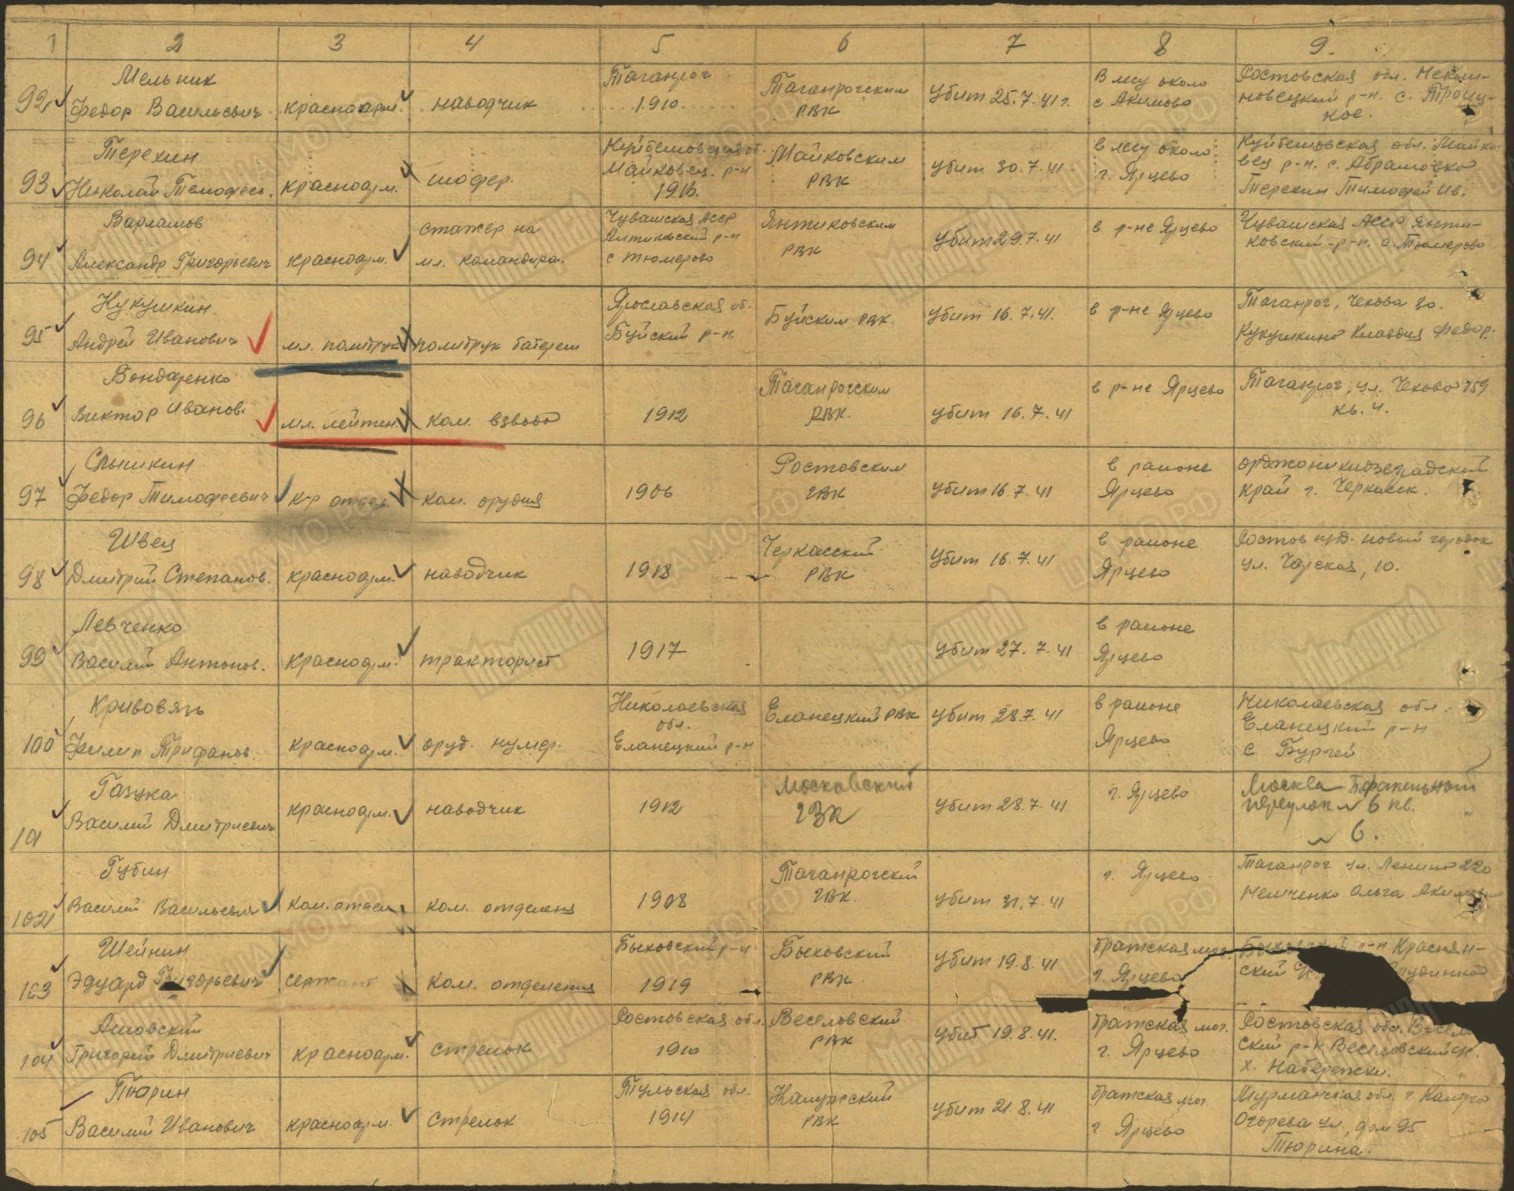 1 2 3 4 5 6 7 8 9.
Мельник Таганрог В лесу около Ростовская обл. Некли-
92 Федор Васильевич красноарм. наводчик 1910. Таганрогским убит 25.7.41г. с Акимово новецкий р-н. с. Троиц-
РВК кое.
Терехин Куйбышовская об. Майковским в лесу около Куйбышовская обл. Майко-
93 Николай Тимофеев. красноарм. шофер. Майковец. р-н РВК убит 30.7.41 г. Ярцево вец р-н. с. Абрамовка
1916. Терехин Тимофей Ив.
Варламов стажер на Чувашская АССР Янтиковским в р-не Ярцево Чувашская АССР Янти-
94 Александр Григорьевич красноарм. мл. командира. Янтиковский р-н РВК убит 29.7.41 ковский р-н. с. Тюмерево
с Тюмерово
Кукушкин Ярославская об. Буйским РВК. убит 16.7.41. в р-не Ярцево Таганрог, Чехова 80.
95 Андрей Иванович мл. политрук политрук батереи Буйский р-н Кукушкина Клавдия Федор.
Бондаренко Таганрогским в р-не Ярцево Таганрог, ул. Чехова 159
96 Виктор Иванов. мл. лейтен. ком. взвода 1912 РВК. убит 16.7.41 кв. 4.
Ростовским в районе орджоникидзеградский
97 Федор Тимофеевич к-р отдел. ком. орудия 1906 ГВК убит 16.7.41 Ярцево край г. Черкесск.
Швец Черкасский в районе Ростов н/Д. новый городок
98 Дмитрий Степанов. красноарм. наводчик 1918 РВК убит 16.7.41 Ярцево 10.
Левченко в районе
99 Василий Антонов. красноарм. тракторист 1917 убит 27.7.41 Ярцево
Кривовязь Николаевская Еланецкий РВК убит 28.7.41 в районе Николаевская обл.
100 Филип Трифанов. красноарм. оруд. нумер. обл. Ярцево Еланецкий р-н
Еланецкий р-н с
Московский г. Ярцево Москва
101 Василий Дмитриевич красноарм. наводчик 1912 ГВК убит 28.7.41 переулок № 6 кв.
№ 6.
Губин Таганрогский г. Ярцево Таганрог ул. Ленина 220
102 Василий Васильевич ком. отдел. ком. отделения 1908 ГВК. убит 31.7.41 Немченко Ольга
Шейнин Быховский р-н Быховский братская мог. р-н
103 Эдуард Григорьевич сержант ком. отделения 1919 РВК. убит 19.8.41 г. Ярцево ский
Ростовская обл. Веселовский братская мог. Ростовская обл.
104 Григорий Дмитриевич красноарм. стрелок 1910 РВК убит 19.8.41. г. Ярцево ский р-н
х.
Тюрин Тульская обл. братская мог. Мурманская обл. г
105 Василий Иванович красноарм. стрелок 1914 РВК убит 21.8.41 г Ярцево Огорева ул., дом 95
Тюрина.